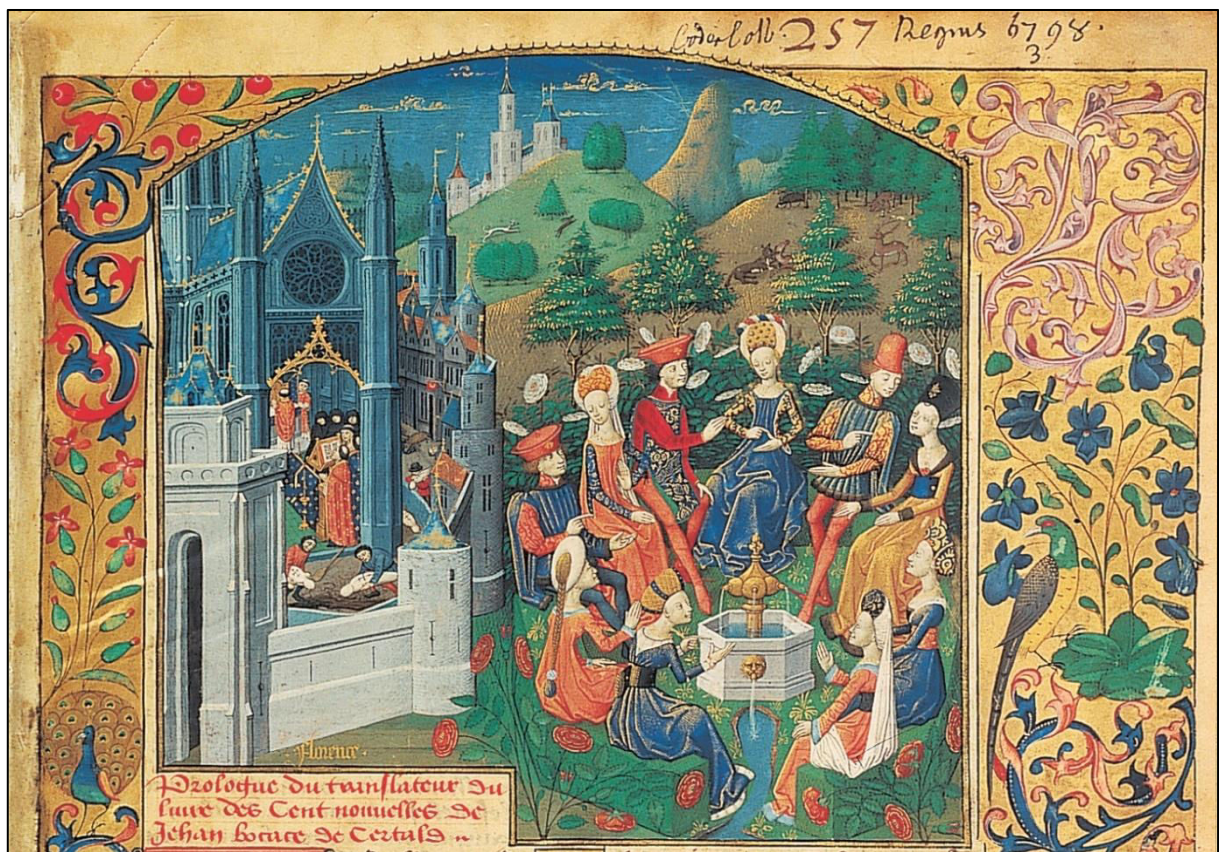 Codex Colb. 257 Regius 6798.
3.
Florence.
Prologue du translateur du
livre des Cent nouuelles de
Jehan bocace de Certald